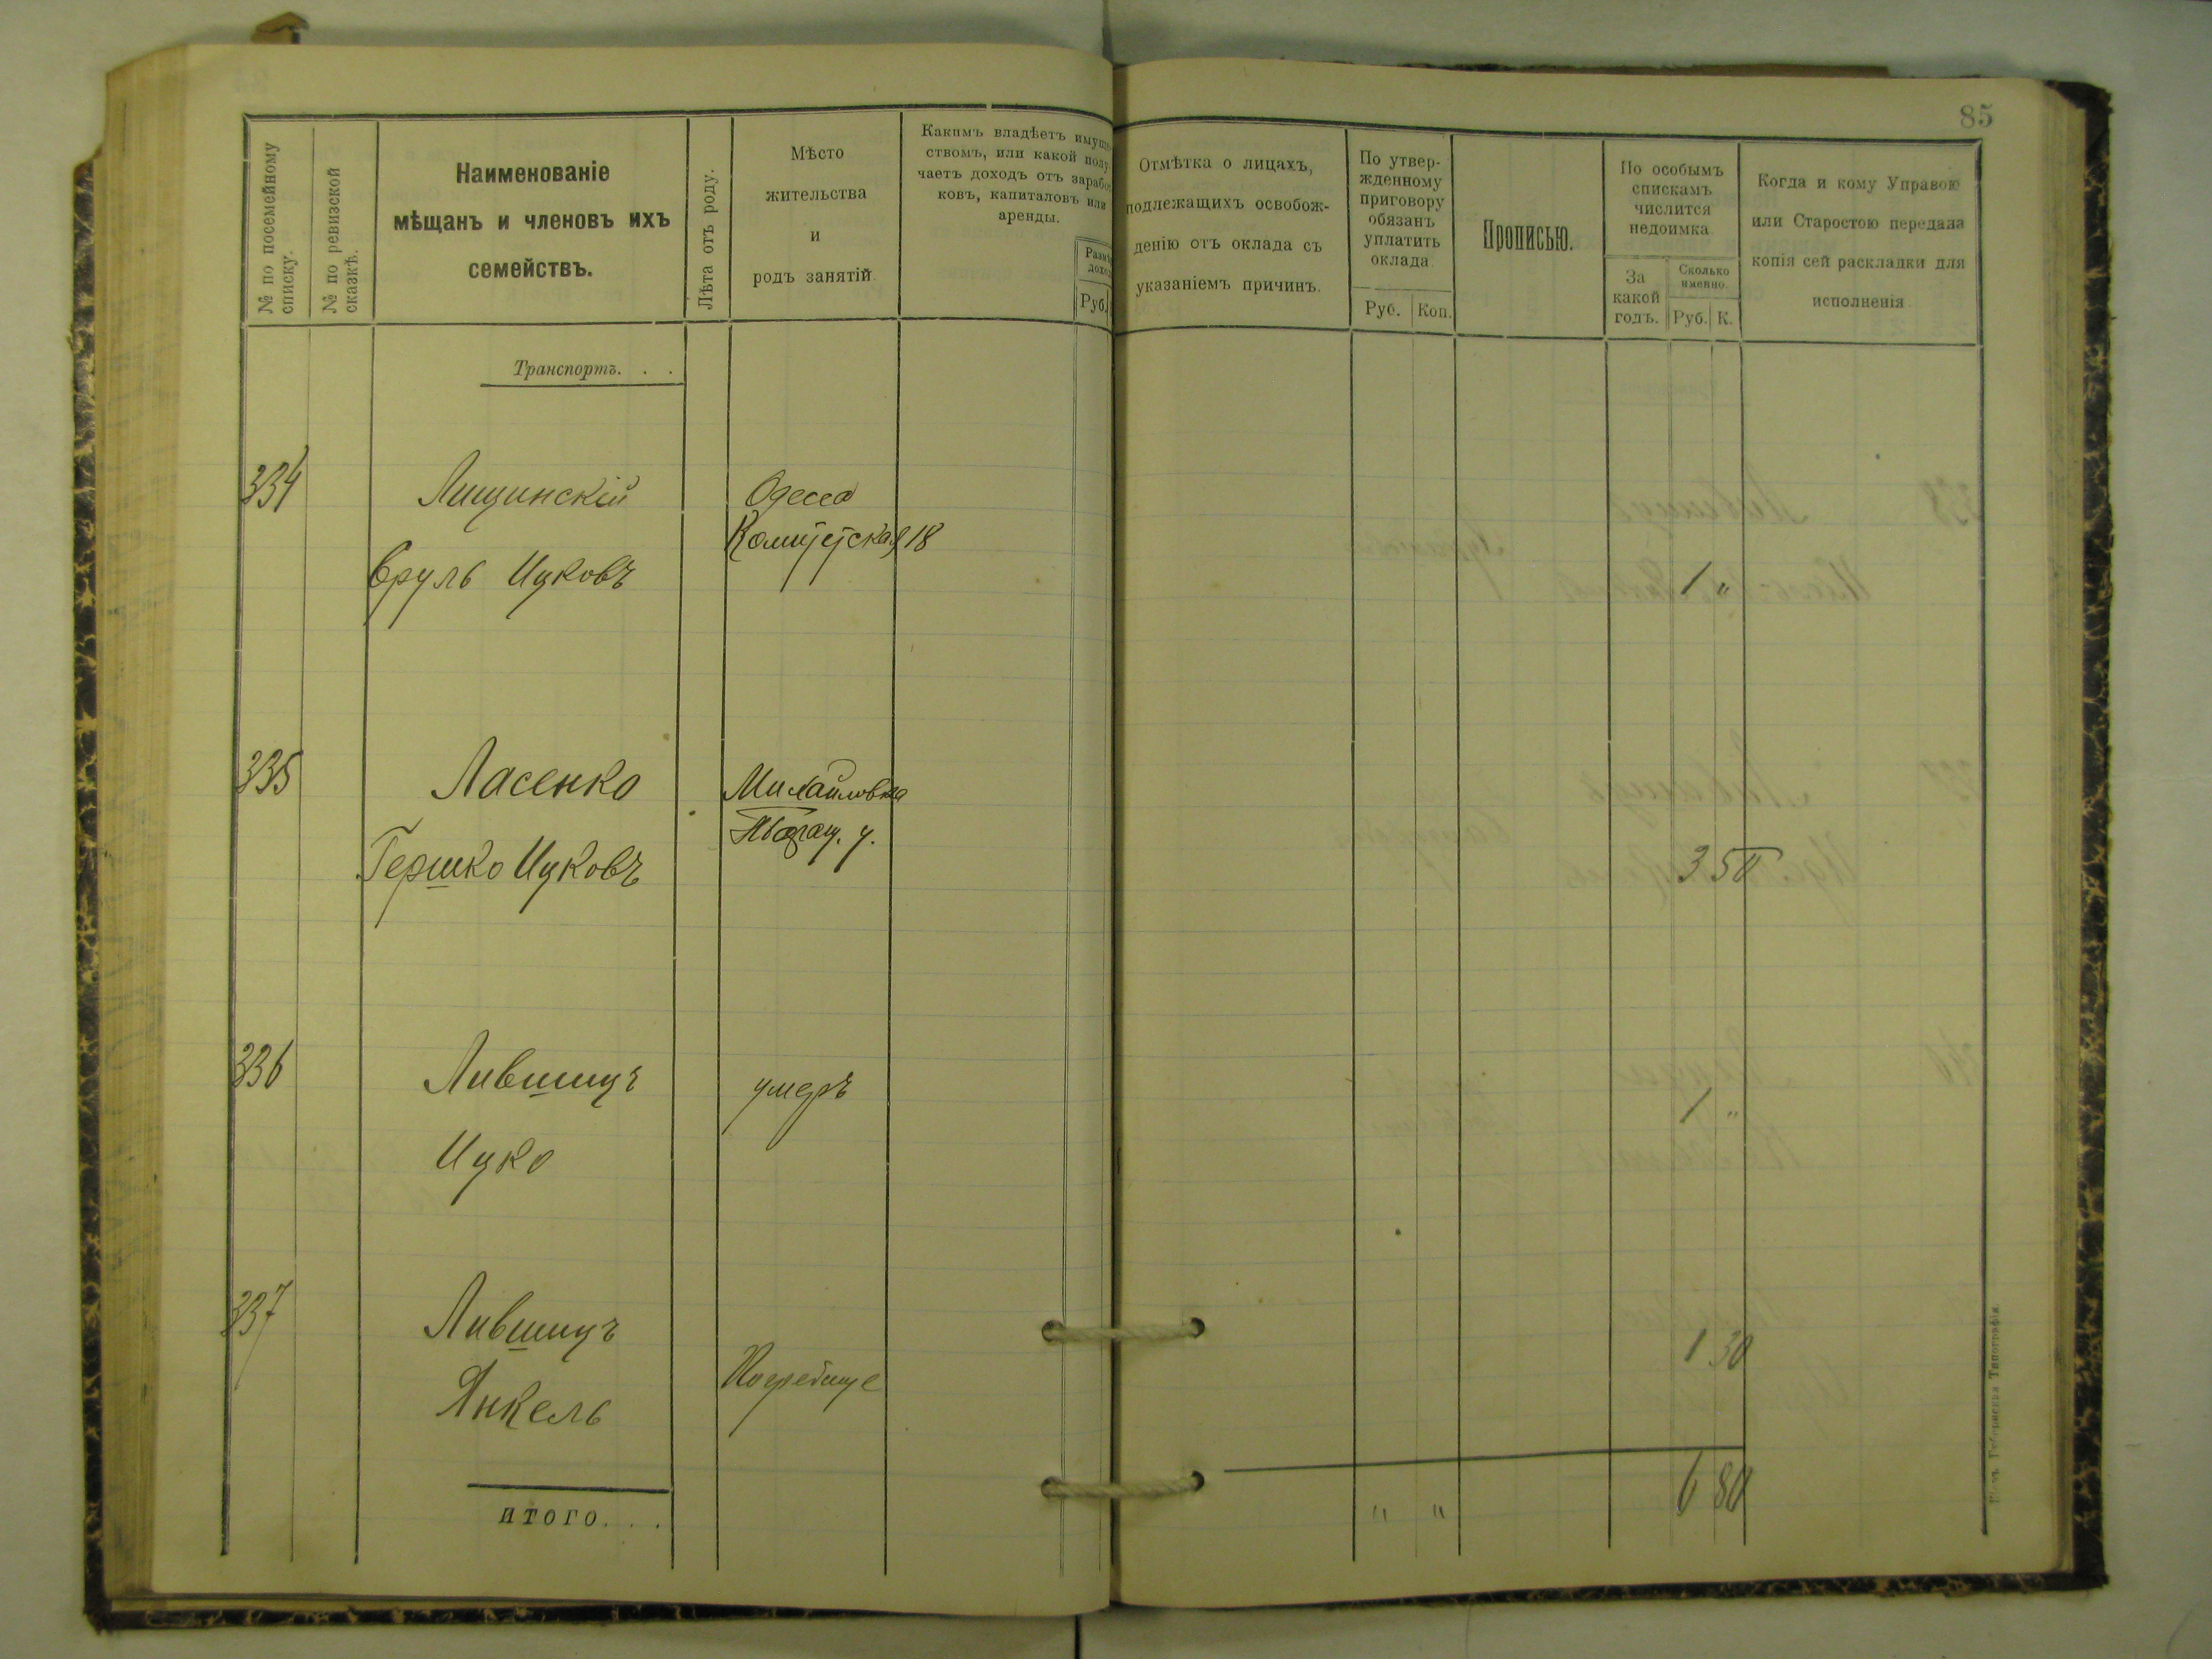 85
№ по посемейному
списку.
№ по ревизской
сказкѣ.
Наименованіе
мѣщанъ и членовъ ихъ
семействъ.
Лѣта отъ роду.
Мѣсто
жительства
и
родъ занятій.
Какимъ владѣетъ имуще-
ствомъ, или какой полу-
чаетъ доходъ отъ заработ-
ковъ, капиталовъ или
аренды.
Руб.
Отмѣтка о лицахъ,
подлежащихъ освобож-
денію отъ оклада съ
указаніемъ причинъ.
По утвер-
жденному
приговору
обязанъ
уплатить
оклада.
Руб. Коп.
Прописью.
По особымъ
спискамъ
числится
недоимка
За
какой
годъ.
Сколько
именно.
Руб. К.
Когда и кому Управою
или Старостою передана
копія сей раскладки для
исполненія
Транспортъ. . .
334
Лищинскій
Сруль Ицковъ
Одесса
18
1 "
335
Ласенко
Гершко Ицковъ
Михайловка
3 50
336
Лившицъ
Ицко
умеръ
1 "
337
Лившицъ
Янкель
Погребище
1 30
итого. . .
" "
6 80